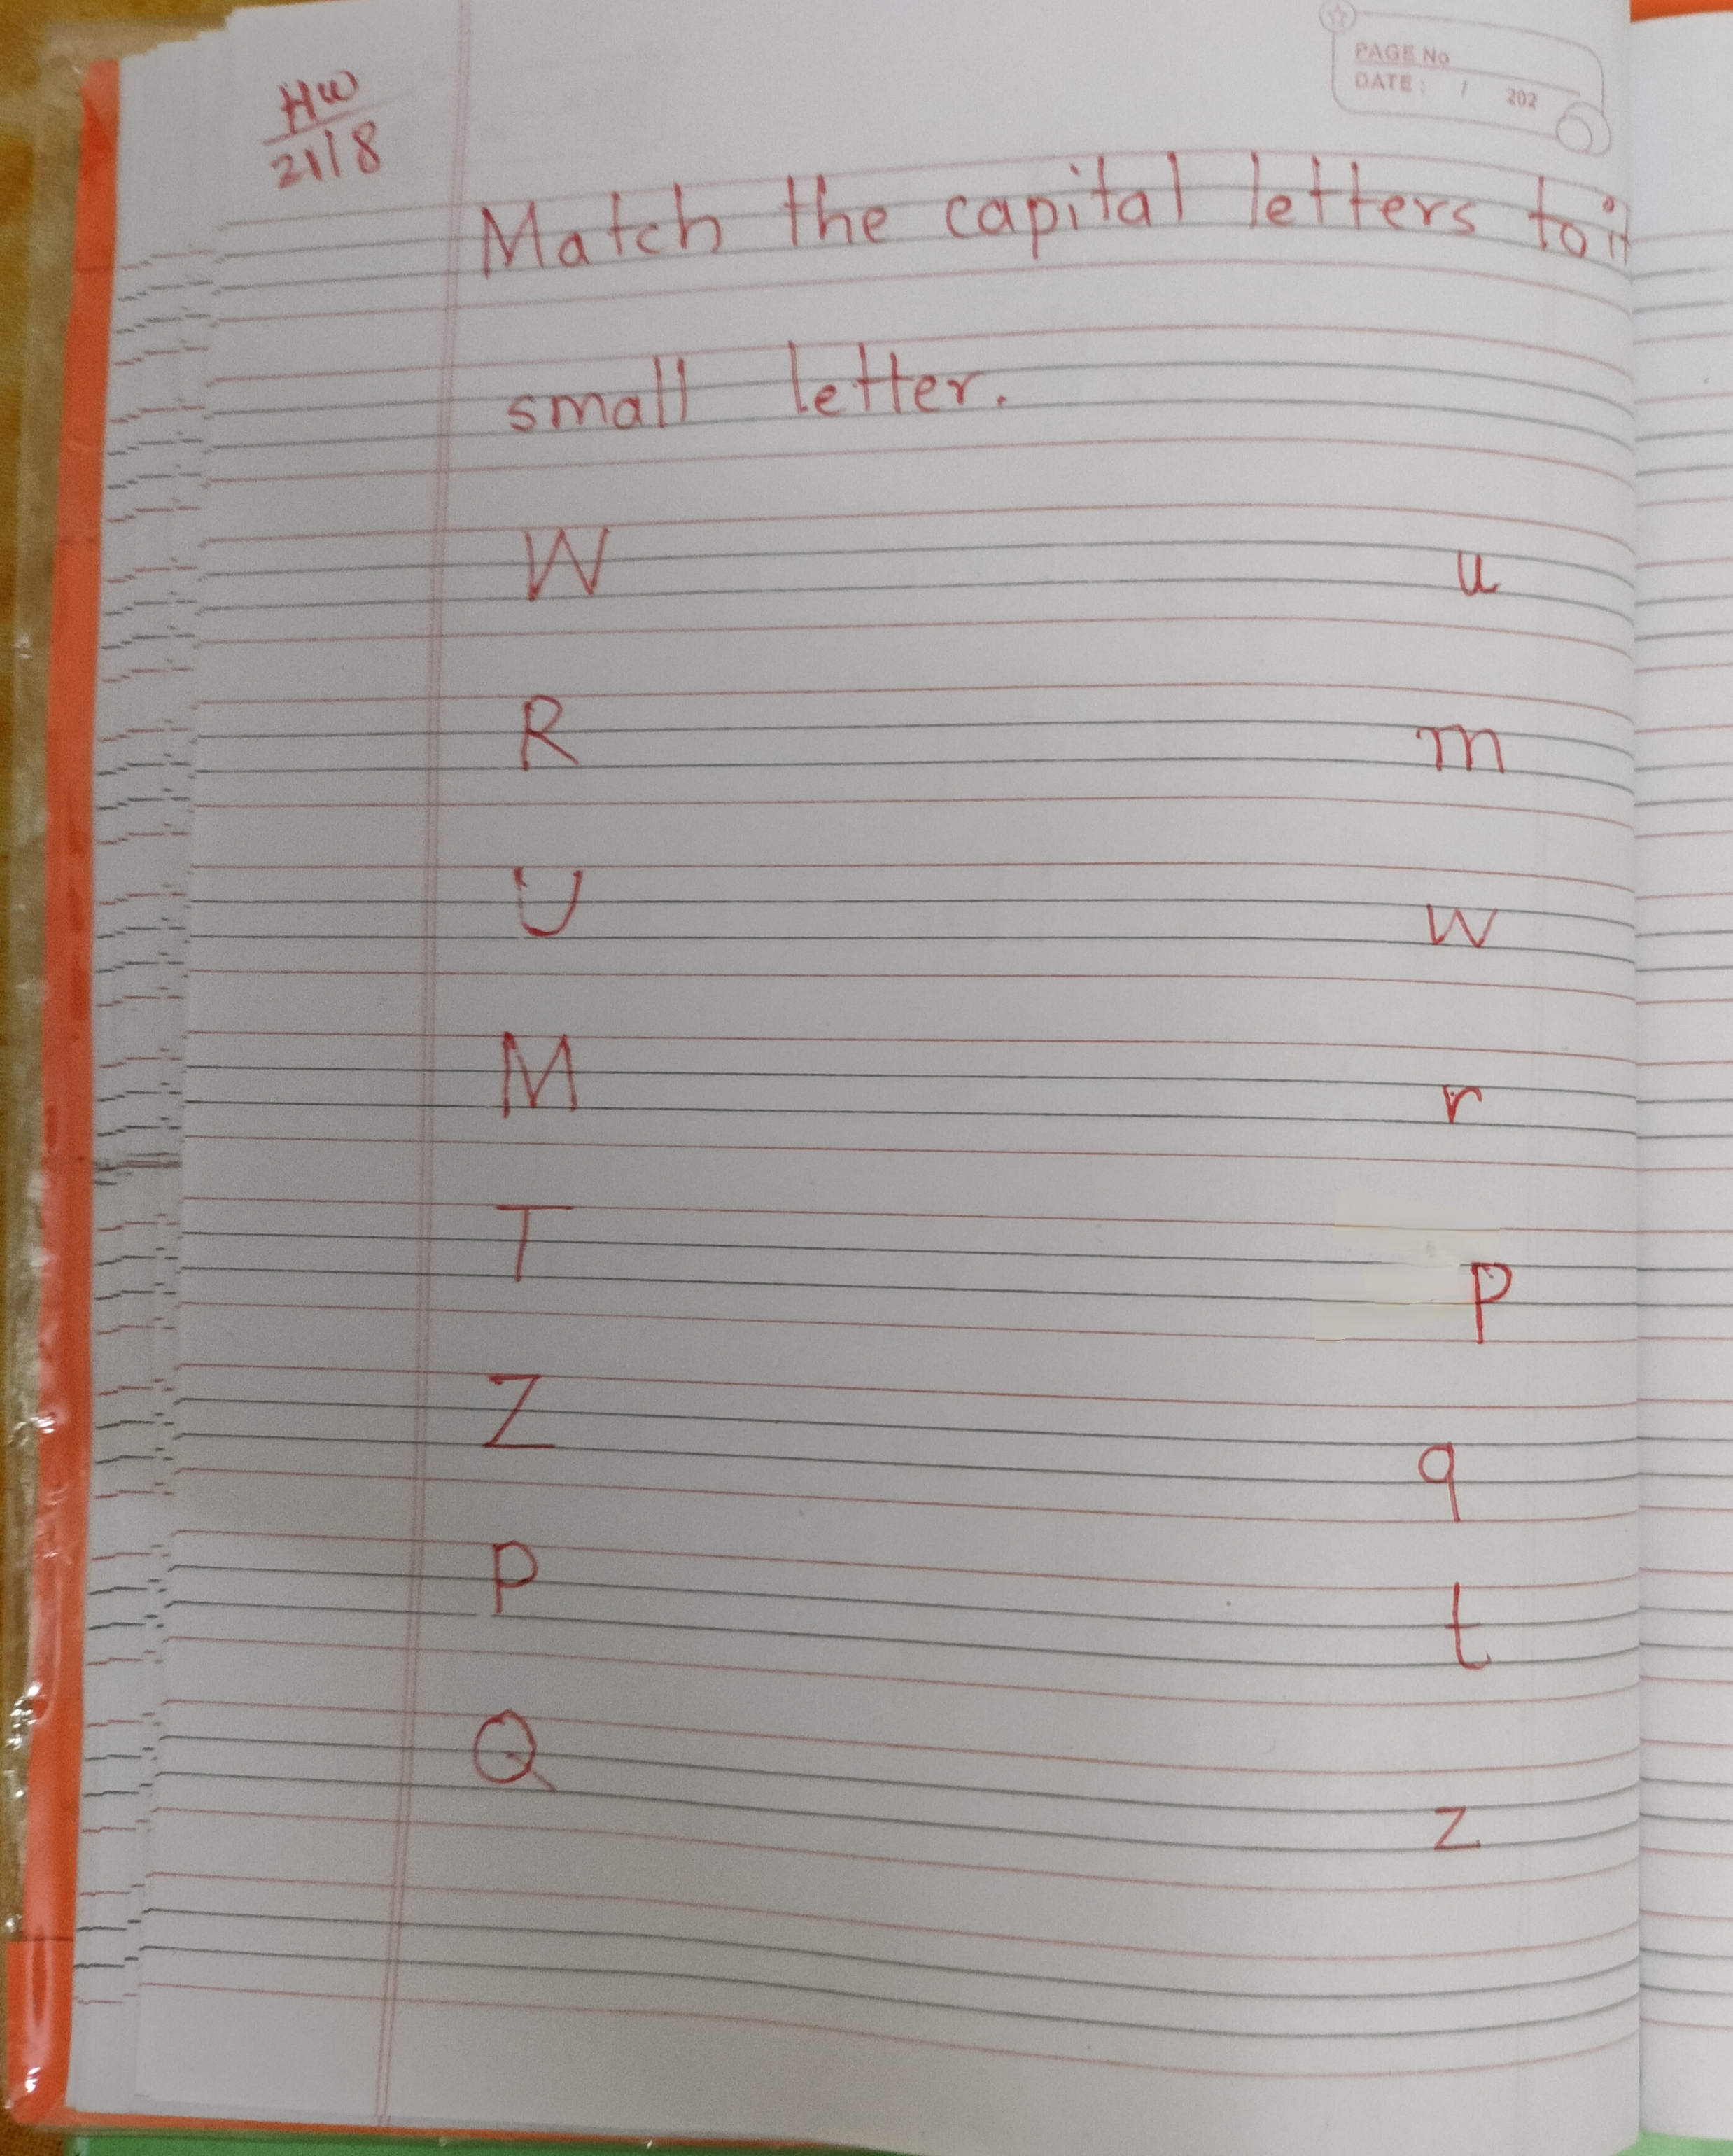 PAGE No
DATE : / 202
HW
21/8
Match the capital letters to it
small letter.
W u
R m
U w
M r
T p
Z q
P t
Q z